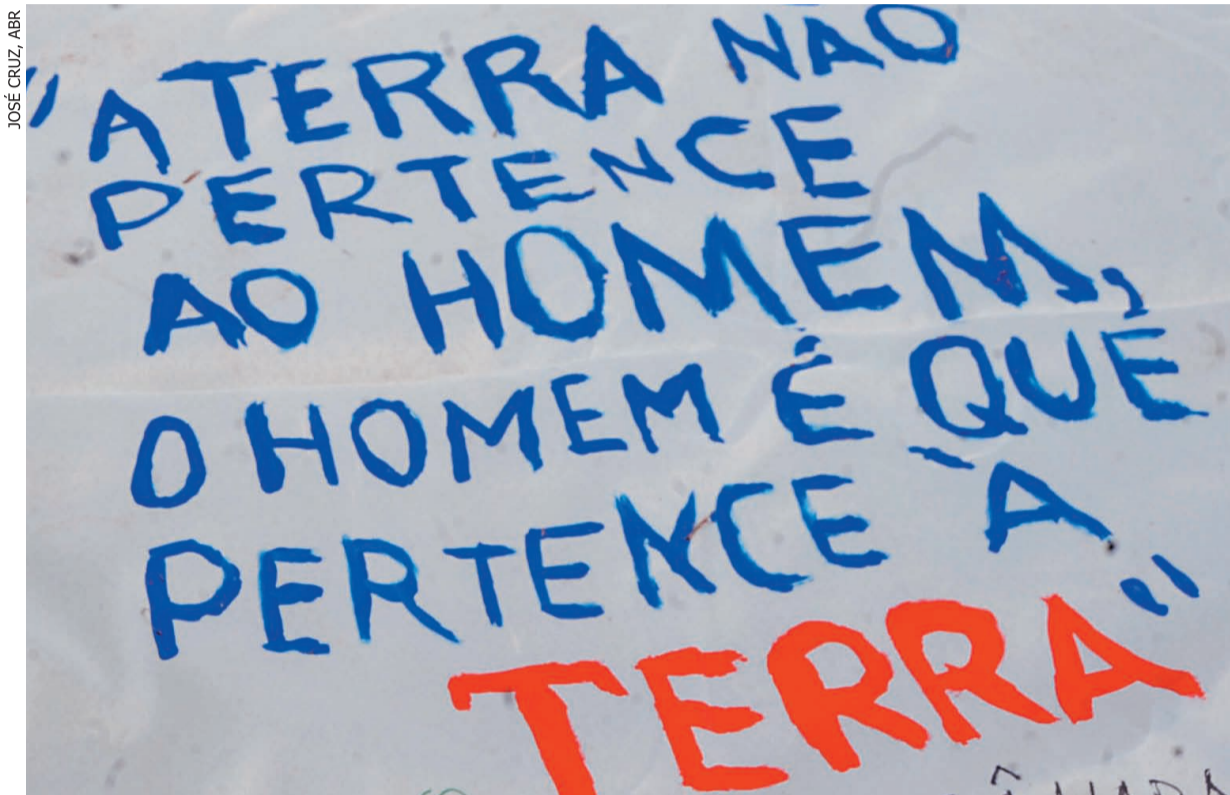 JOSÉ CRUZ, ABR
"A TERRA NÃO
PERTENCE
AO HOMEM,
O HOMEM É QUE
PERTENCE À
TERRA"